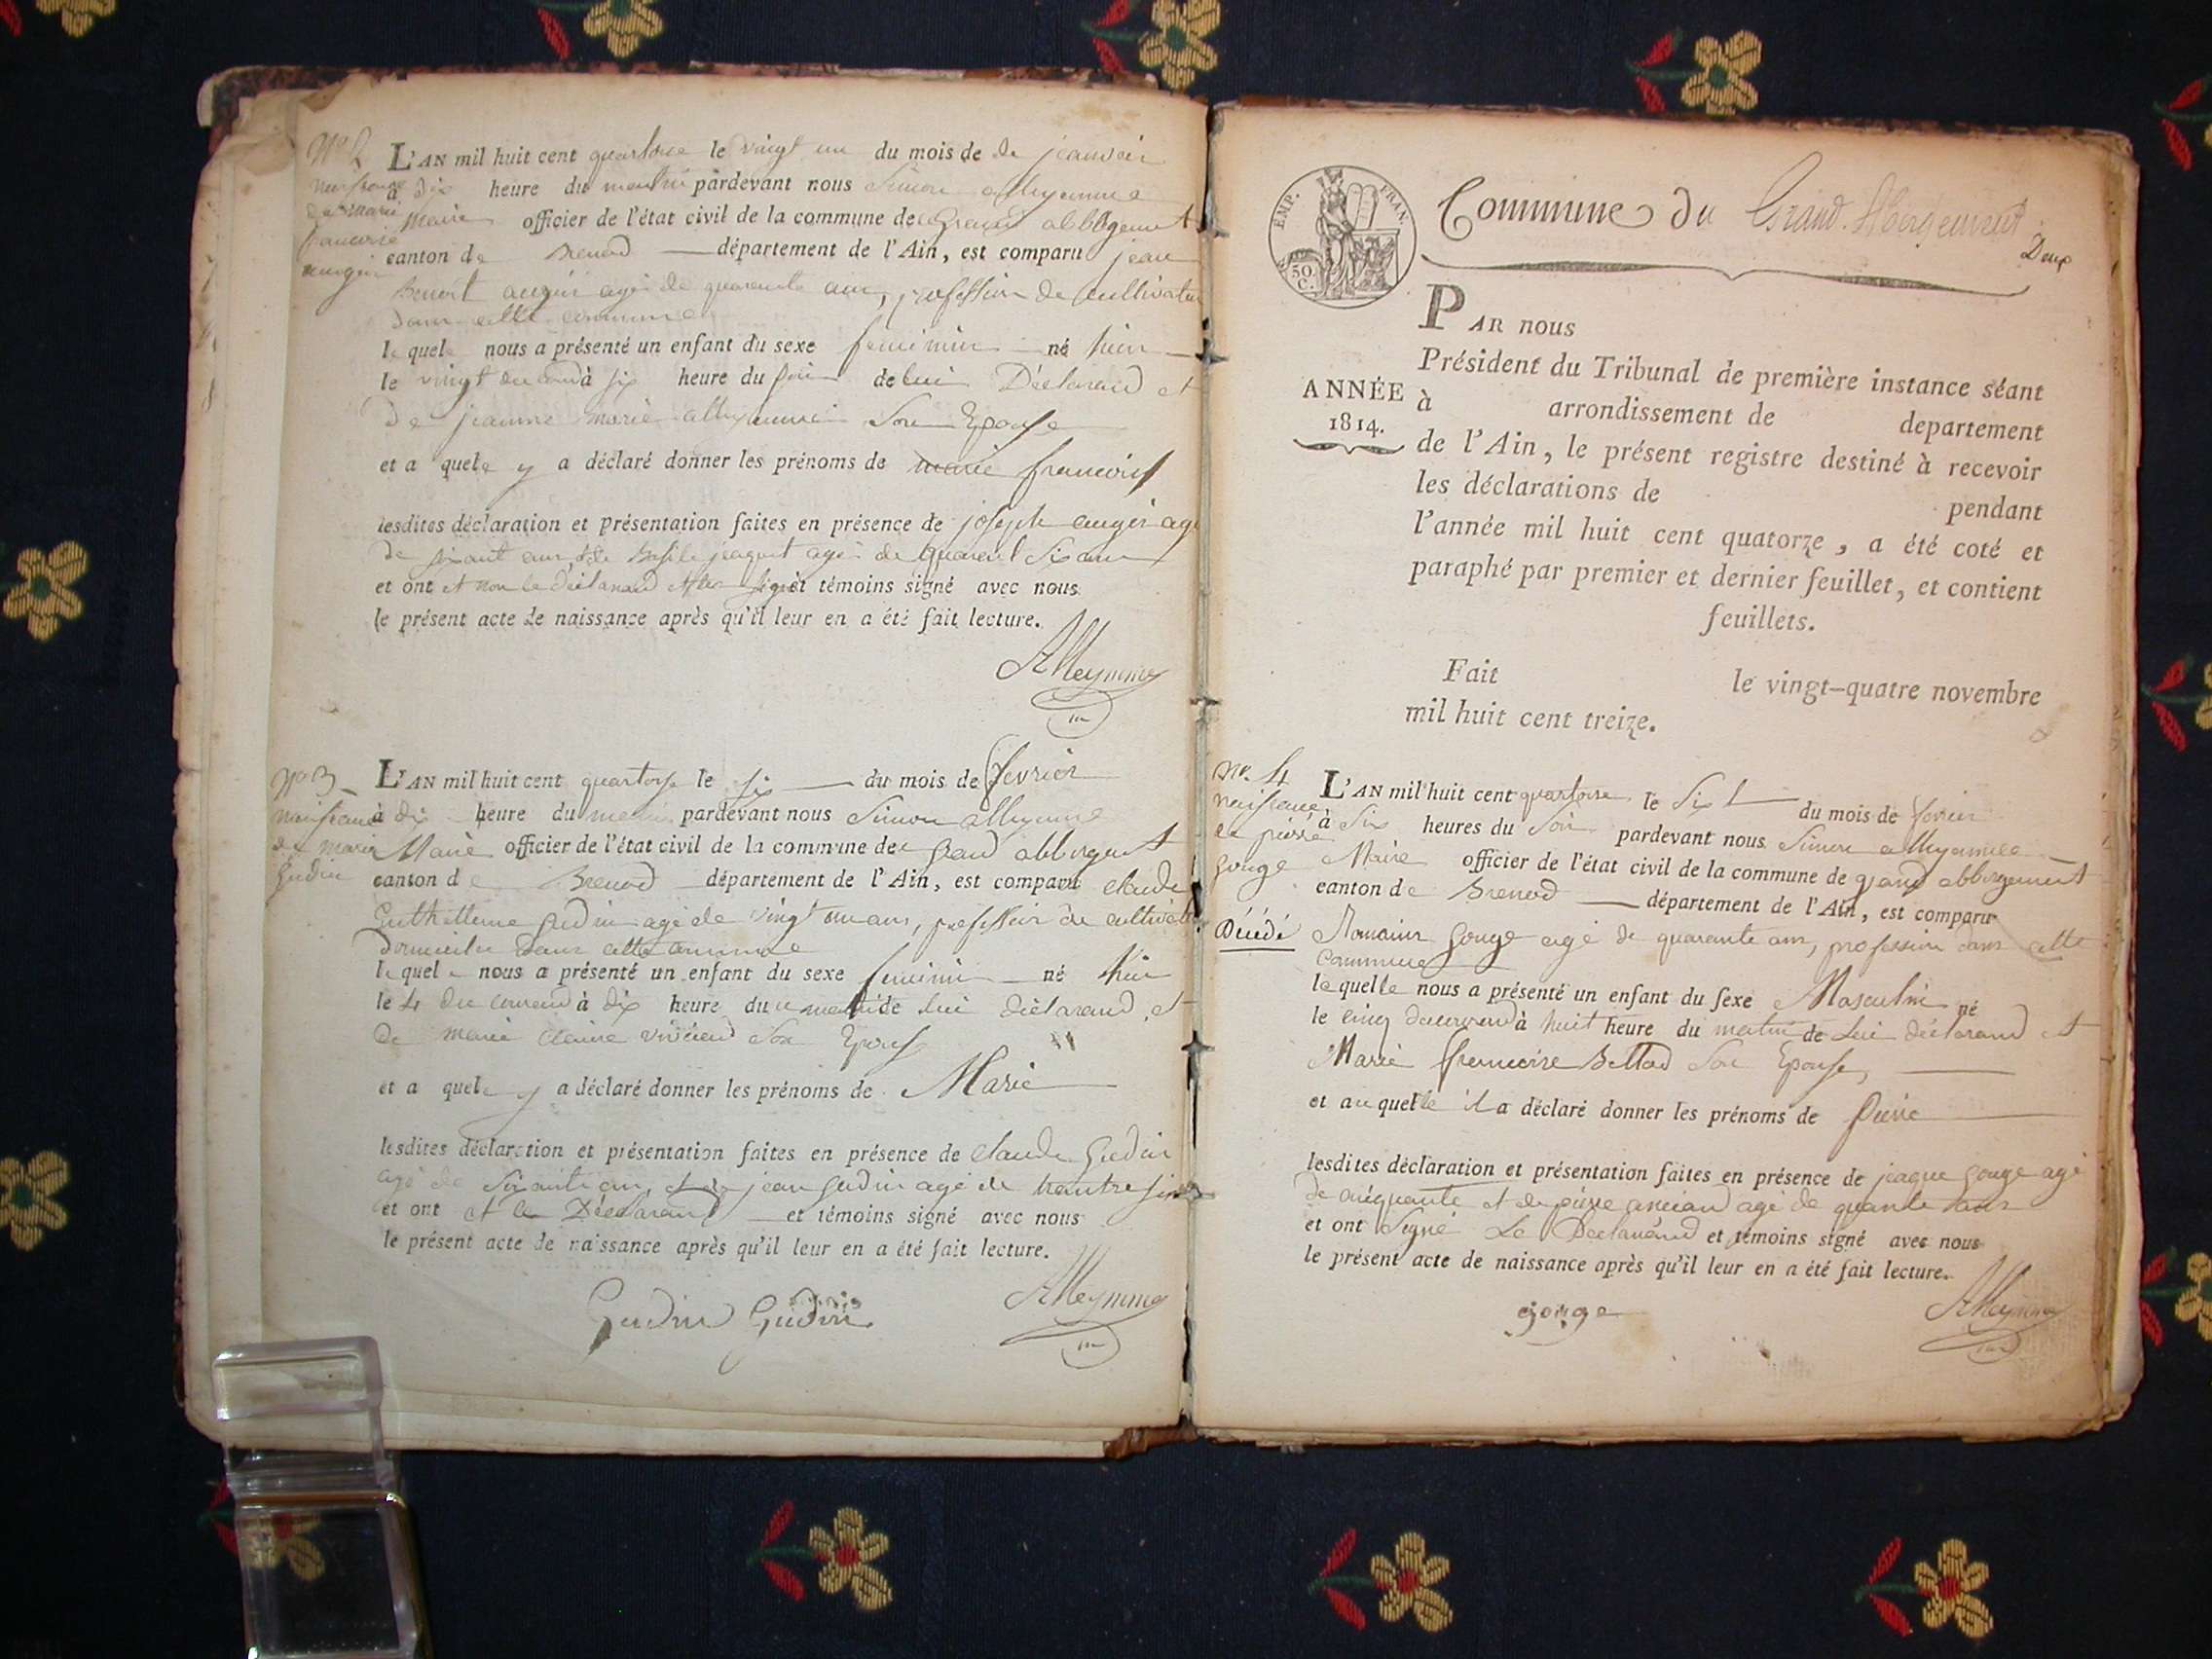 No 2
L'AN mil huit cent quartorze le vingt un du mois de de jeanvier
à dix heure du matin pardevant nous Simon alleymme
Maire officier de l'état civil de la commune de Grand abbergement
canton de Brenod département de l'Ain, est comparu jean
Benoit augier agé de quarente ans, profession de cultivateur
dans cette commune
lequel nous a présenté un enfant du sexe feminin né hier
le vingt du courd à six heure du soir de lui Déclarand et
De jeanne marie alleymme Son Epouse
et a quele y a déclaré donner les prénoms de marie francoise
lesdites déclaration et présentation faites en présence de joseph augier agé
de soixant ans, et de Basile jaquet agé de quarent Six ans
et ont et non le déclarand et témoins signé avec nous
le présent acte de naissance après qu'il leur en a été fait lecture.
Alleymme
No 3
naissance de marie Gudin
L'AN mil huit cent quartorze le six du mois de fevrier
à dix heure du matin pardevant nous Simon alleymme
Maire officier de l'état civil de la commune de grand abbergement
canton de Brenod département de l'Ain, est comparu claude
Guthelleme gudin agé de vingt un ans, profession de cultivateur
Domicilié dans cette commune
lequel nous a présenté un enfant du sexe feminin né hier
le 4 du courand à dix heure du matin de lui déclarand, et
De marie claire vivieand Son Epouse
et a quele y a déclaré donner les prénoms de Marie
lesdites déclaration et présentation faites en présence de claude Gudin
agé de Soixante ans, et de jean gudin agé de trantre six
et ont et le Déclarand et témoins signé avec nous
le présent acte de naissance après qu'il leur en a été fait lecture.
Gudin Gudin Alleymme
EMP. FRAN.
50 C.
Commune du Grand Abergement
Deux
ANNÉE
1814.
PAR nous
Président du Tribunal de première instance séant
à arrondissement de departement
de l'Ain, le présent registre destiné à recevoir
les déclarations de pendant
l'année mil huit cent quatorze, a été coté et
paraphé par premier et dernier feuillet, et contient
feuillets.
Fait le vingt-quatre novembre
mil huit cent treize.
No. 4
naissance de pierre gouge
Décédé
L'AN mil huit cent quartorze le Six du mois de fevrier
à Six heures du Soir pardevant nous Simon alleymme
Maire officier de l'état civil de la commune de grand abbergement
canton de Brenod département de l'Ain, est comparu
Romain gouge agé de quarante ans, profession dans cette
commune
lequelle nous a présenté un enfant du sexe Masculin né
le cinq du courend à huit heure du matin de Lui déclarand et
Marie francoise Bellod Son Epouse,
et auquelle il a déclaré donner les prénoms de Pierre
lesdites déclaration et présentation faites en présence de jeaque gouge agé
de cinquante et de pierre anciand agé de quante ans
et ont Signé Le Declarand et témoins signé avec nous
le présent acte de naissance après qu'il leur en a été fait lecture.
gouge Alleymme